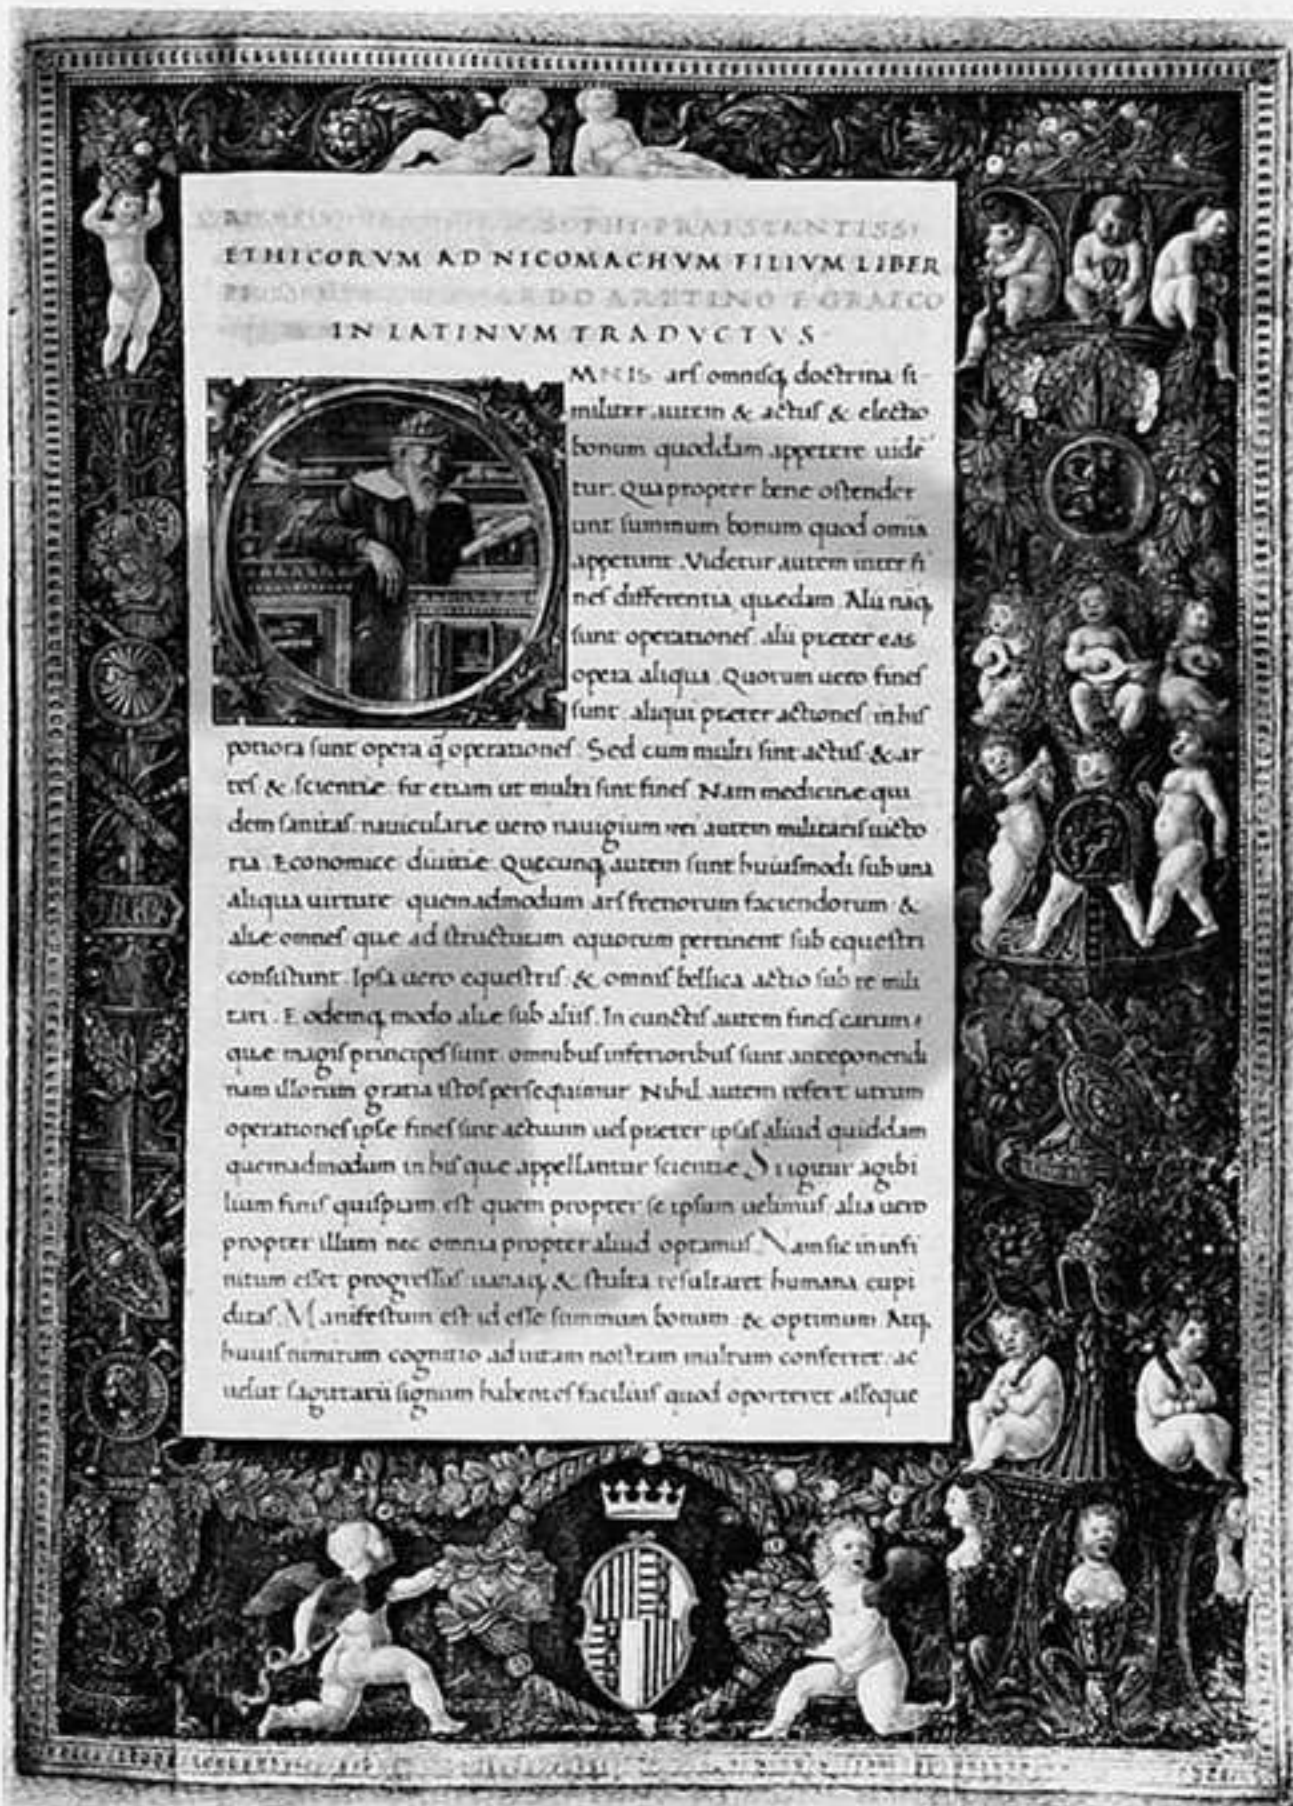 PHI PRAESTANTISSI
ETHICORVM AD NICOMACHVM FILIVM LIBER
ARETINO E GRAECO
IN LATINVM TRADVCTVS
MNIS arſ omniſq; doctrina ſi-
militer autem & actuſ & electio
bonum quoddam appetere uidē
tur. Quapropter bene oſtender
unt ſummum bonum quod omīa
appetunt. Videtur autem inter fi
neſ differentia quedam. Alii naq;
ſunt operationeſ alii preter eas
opera aliqua. Quorum uero fineſ
ſunt aliqui preter actioneſ in hiſ
potiora ſunt opera q̃ operationeſ. Sed cum multi ſint actuſ & ar
teſ & ſcientie fit etiam ut multi ſint fineſ. Nam medicine qui
dem ſanitaſ nauicularie uero nauigium rei autem militariſ uicto
ria. Economice diuitie. Quecunq; autem ſunt huiuſmodi ſub una
aliqua uirtute quemadmodum arſ frenorum faciendorum &
alie omneſ que ad ſtructuram equorum pertinent ſub equeſtri
conſiſtunt. Ipſa uero equeſtriſ & omniſ bellica actio ſub re mili
tari. Eodemq; modo alie ſub aliiſ. In cunctiſ autem fineſ earum
que magiſ principeſ ſunt omnibuſ inferioribuſ ſunt anteponendi
nam illorum gratia iſtoſ perſequimur. Nihil autem refert utrum
operationeſ ipſe fineſ ſint actuum uel preter ipſaſ aliud quiddam
quemadmodum in hiſ que appellantur ſcientie. Si igitur agibi
lium finiſ quiſpiam eſt quem propter ſe ipſum uelimuſ alia uero
propter illum nec omnia propter aliud optamuſ. Nam ſic in infi
nitum eſſet progreſſuſ uanaq; & ſtulta reſultaret humana cupi
ditaſ. Manifeſtum eſt id eſſe ſummum bonum & optimum. Atq;
huiuſ nimirum cognitio ad uitam noſtram multum conferret ac
uelut ſagittarii ſignum habenteſ faciliuſ quod oporteret aſſeque